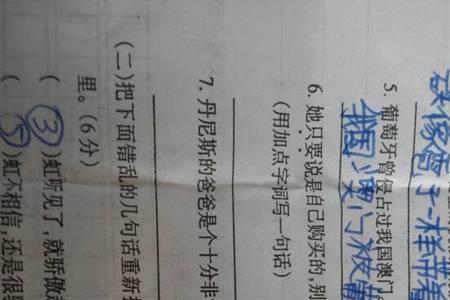 像雪子一样带着
5. 葡萄牙曾侵占过我国澳门
国澳门被葡
6. 她只要说是自己购买的，别
（用加点字词写一句话）
7. 丹尼斯的爸爸是个十分非
（二）把下面错乱的几句话重新
里。（6分）
（③）虹听见了，就骄傲
（⑤）虹不相信，还是很